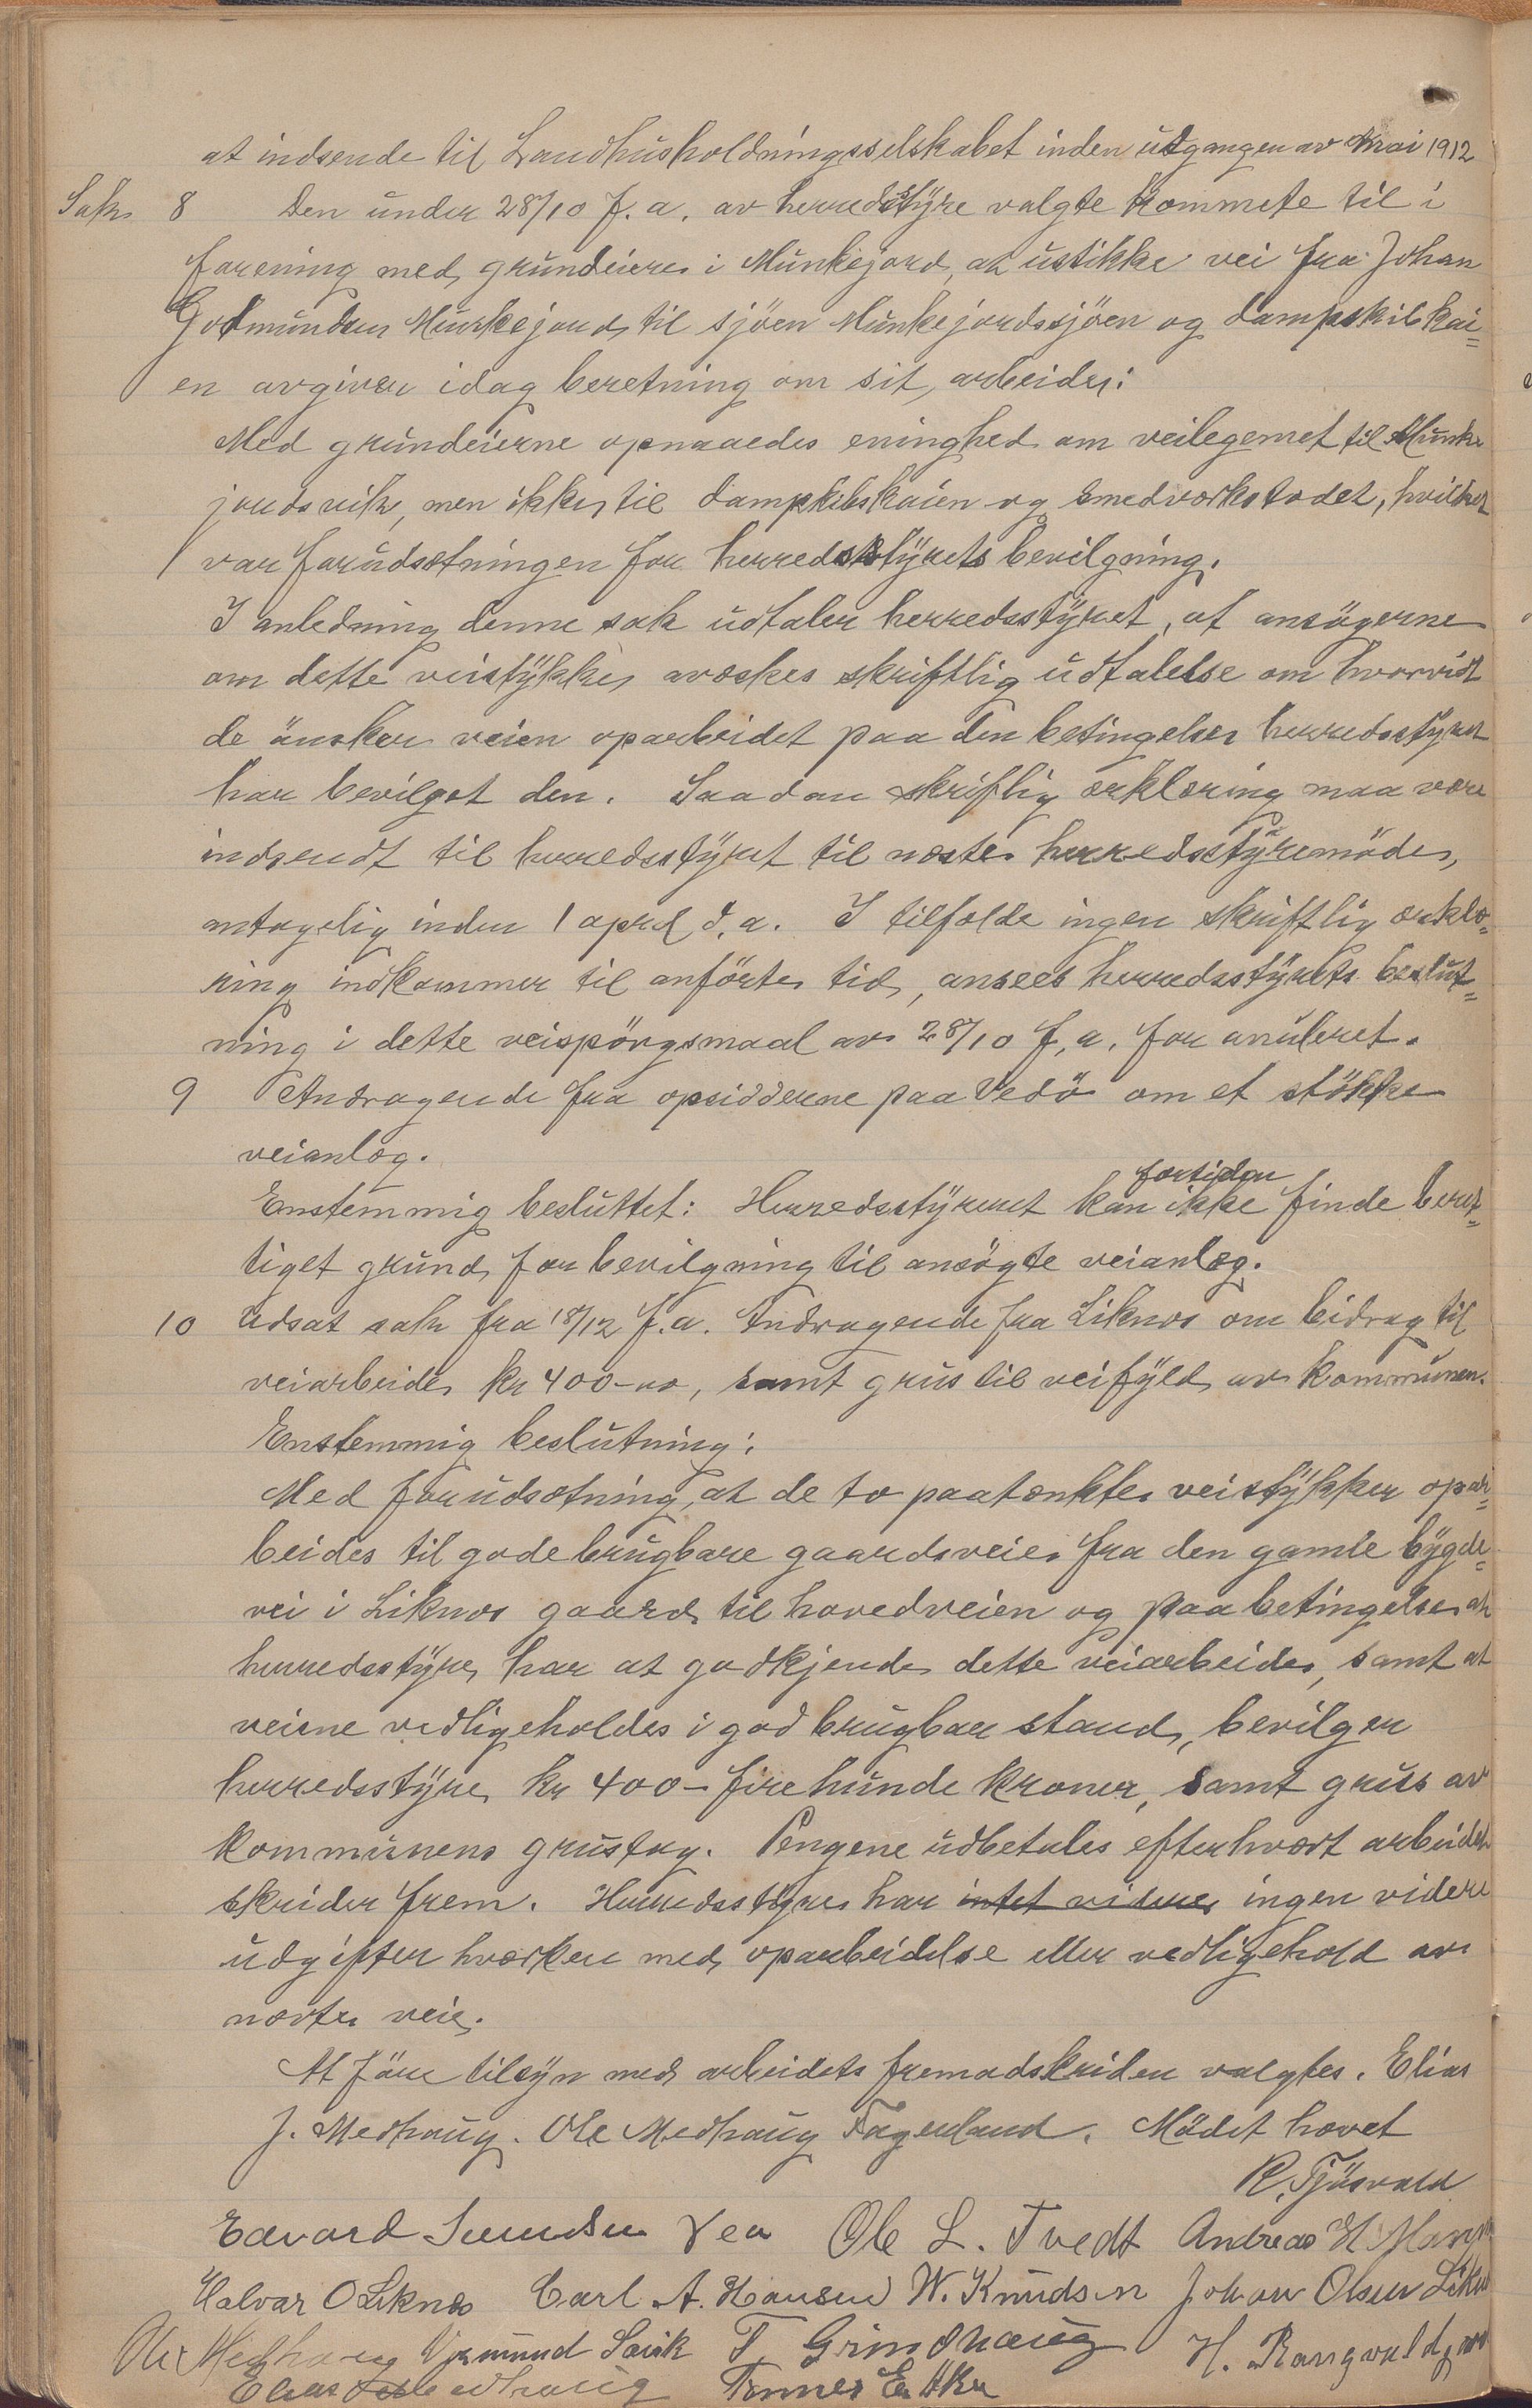 at indsende til Landhusholdningsselskabet inden utgangen av Mai 1912
Sak 8 Den under 28/10 f. a. av herredsstyre valgte kommete til i
forening med grundeiere i Munkejord, at utstikke vei fra Johan
Godmundsen Munkejord til sjöen Munkejordssjöen og dampskibkai=
en avgiver idag beretning om sit arbeide:
Med grundeierne opnaaedes eninghed om veilegemet til Munke
jordsvik, men ikke til dampskibskaien og smedverkstedet, hvilket
var forudsætningen for herredsstyrets bevilgning.
I anledning denne sak udtaler herredsstyret, at ansögerne
om dette veistykke avæskes skriftlig udtalelse om hvorvidt
de önsker veien oparbeidet paa den betingelse herredsstyret
har bevilget den. Saadan skriflig erklæring maa være
indsendt til herredsstyret til næste herredsstyremöde,
antagelig inden 1 april d. a. I tilfælde ingen skriftlig erklæ=
ring indkommer til anförte tid, ansees herredsstyrets beslut=
ning i dette veispörgsmaal av 28/10 f. a. for anuleret.
9 Andragende fra opsidderne paa Vedö om et stökke
veianlæg.
fortiden
Enstemmig besluttet: Herredsstyreret kan ikke finde beret=
tiget grund for bevilgning til ansögte veianlæg.
10 Udsat sak fra 18/12 f. a. Andragende fra Liknes om bidrag til
veiarbeide kr 400-00, samt grus til veifyld av kommunen.
Enstemmig beslutning:
Med forudsætning, at de to paatænkte veistykker opar=
beides til gode brugbare gaardsveie fra den gamle bygde=
vei i Liknes gaard til hovedveien og paa betingelse at
herredsstyre har at godkjende dette veiarbeide, samt at
veiene vedligeholdes i god brugbar stand, bevilger
herredsstyre kr 400- firehunde kroner, samt grus av
kommunens grustag. Pengene udbetales efterhvert arbeidet
skrider frem. Herredsstyre har intet videre ingen videre
udgifter hværken med oparbeidelse eller vedligehold av
nævte veie.
At före tilsyn med arbeidets fremadskriden valgtes. Elias
J. Medhaug. Ole Medhaug Fagerland. Mödet hævet
R. Tjösvold
Edvard Vea Ole L. Tvedt Andreas H.
Halvar O Liknes Carl A. Hansen W. Knudsen Johan Olsen Likn
Ole Medhaug T. Grindhaug H.
Elias Medhaug